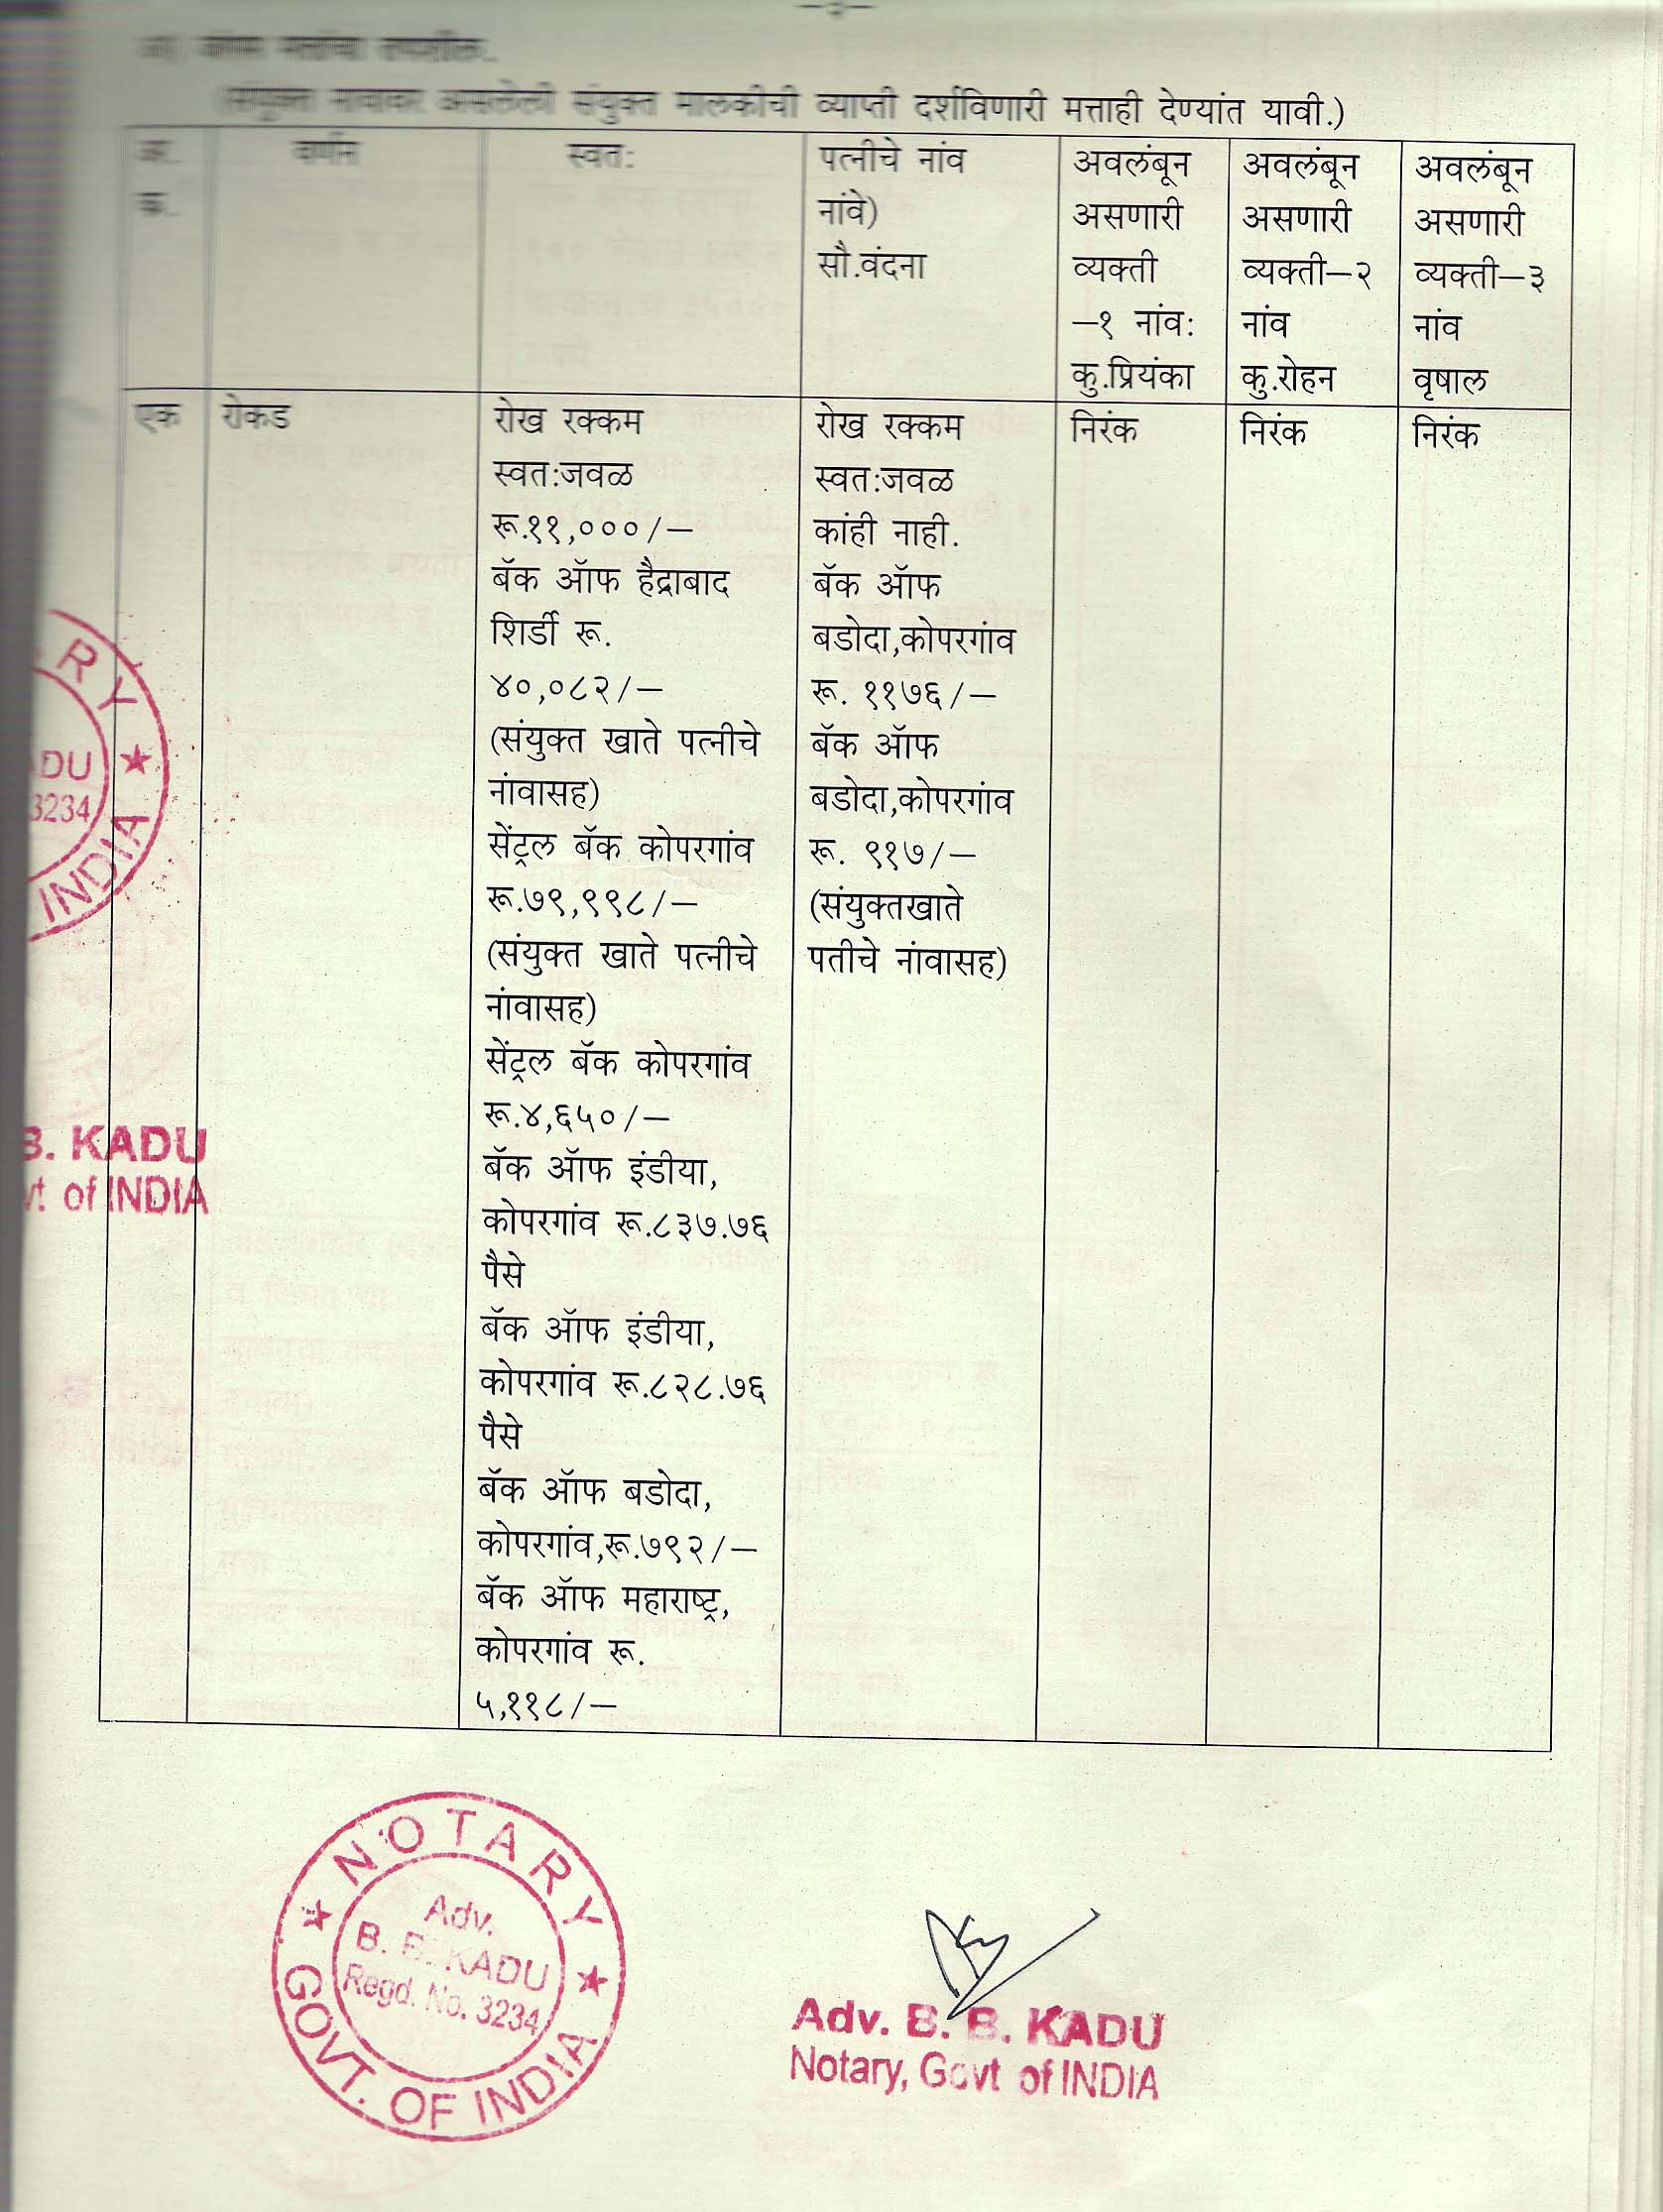 —३—
अ) जंगम मत्तांचा तपशील.
(संयुक्त नावावर असलेली संयुक्त मालकीची व्याप्ती दर्शविणारी मत्ताही देण्यांत यावी.)
अ.
क्र.
वर्णन
स्वत:
पत्नीचे नांव
नांवे)
सौ.वंदना
अवलंबून
असणारी
व्यक्ती
—१ नांव:
कु.प्रियंका
अवलंबून
असणारी
व्यक्ती—२
नांव
कु.रोहन
अवलंबून
असणारी
व्यक्ती—३
नांव
वृषाल
एक
रोकड
रोख रक्कम
स्वत:जवळ
रू.११,०००/—
बॅक ऑफ हैद्राबाद
शिर्डी रू.
४०,०८२/—
(संयुक्त खाते पत्नीचे
नांवासह)
सेंट्रल बॅक कोपरगांव
रू.७९,९९८/—
(संयुक्त खाते पत्नीचे
नांवासह)
सेंट्रल बॅक कोपरगांव
रू.४,६५०/—
बॅक ऑफ इंडीया,
कोपरगांव रू.८३७.७६
पैसे
बॅक ऑफ इंडीया,
कोपरगांव रू.८२८.७६
पैसे
बॅक ऑफ बडोदा,
कोपरगांव,रू.७९२/—
बॅक ऑफ महाराष्ट्र,
कोपरगांव रू.
५,११८/—
रोख रक्कम
स्वत:जवळ
कांही नाही.
बॅक ऑफ
बडोदा,कोपरगांव
रू. ११७६/—
बॅक ऑफ
बडोदा,कोपरगांव
रू. ९१७/—
(संयुक्तखाते
पतीचे नांवासह)
निरंक
निरंक
निरंक
RY
ADU
3234
INDIA
B. KADU
vt. of INDIA
NOTARY
Adv.
B. B. KADU
Regd. No. 3234
GOVT. OF INDIA
Adv. B. B. KADU
Notary, Govt of INDIA